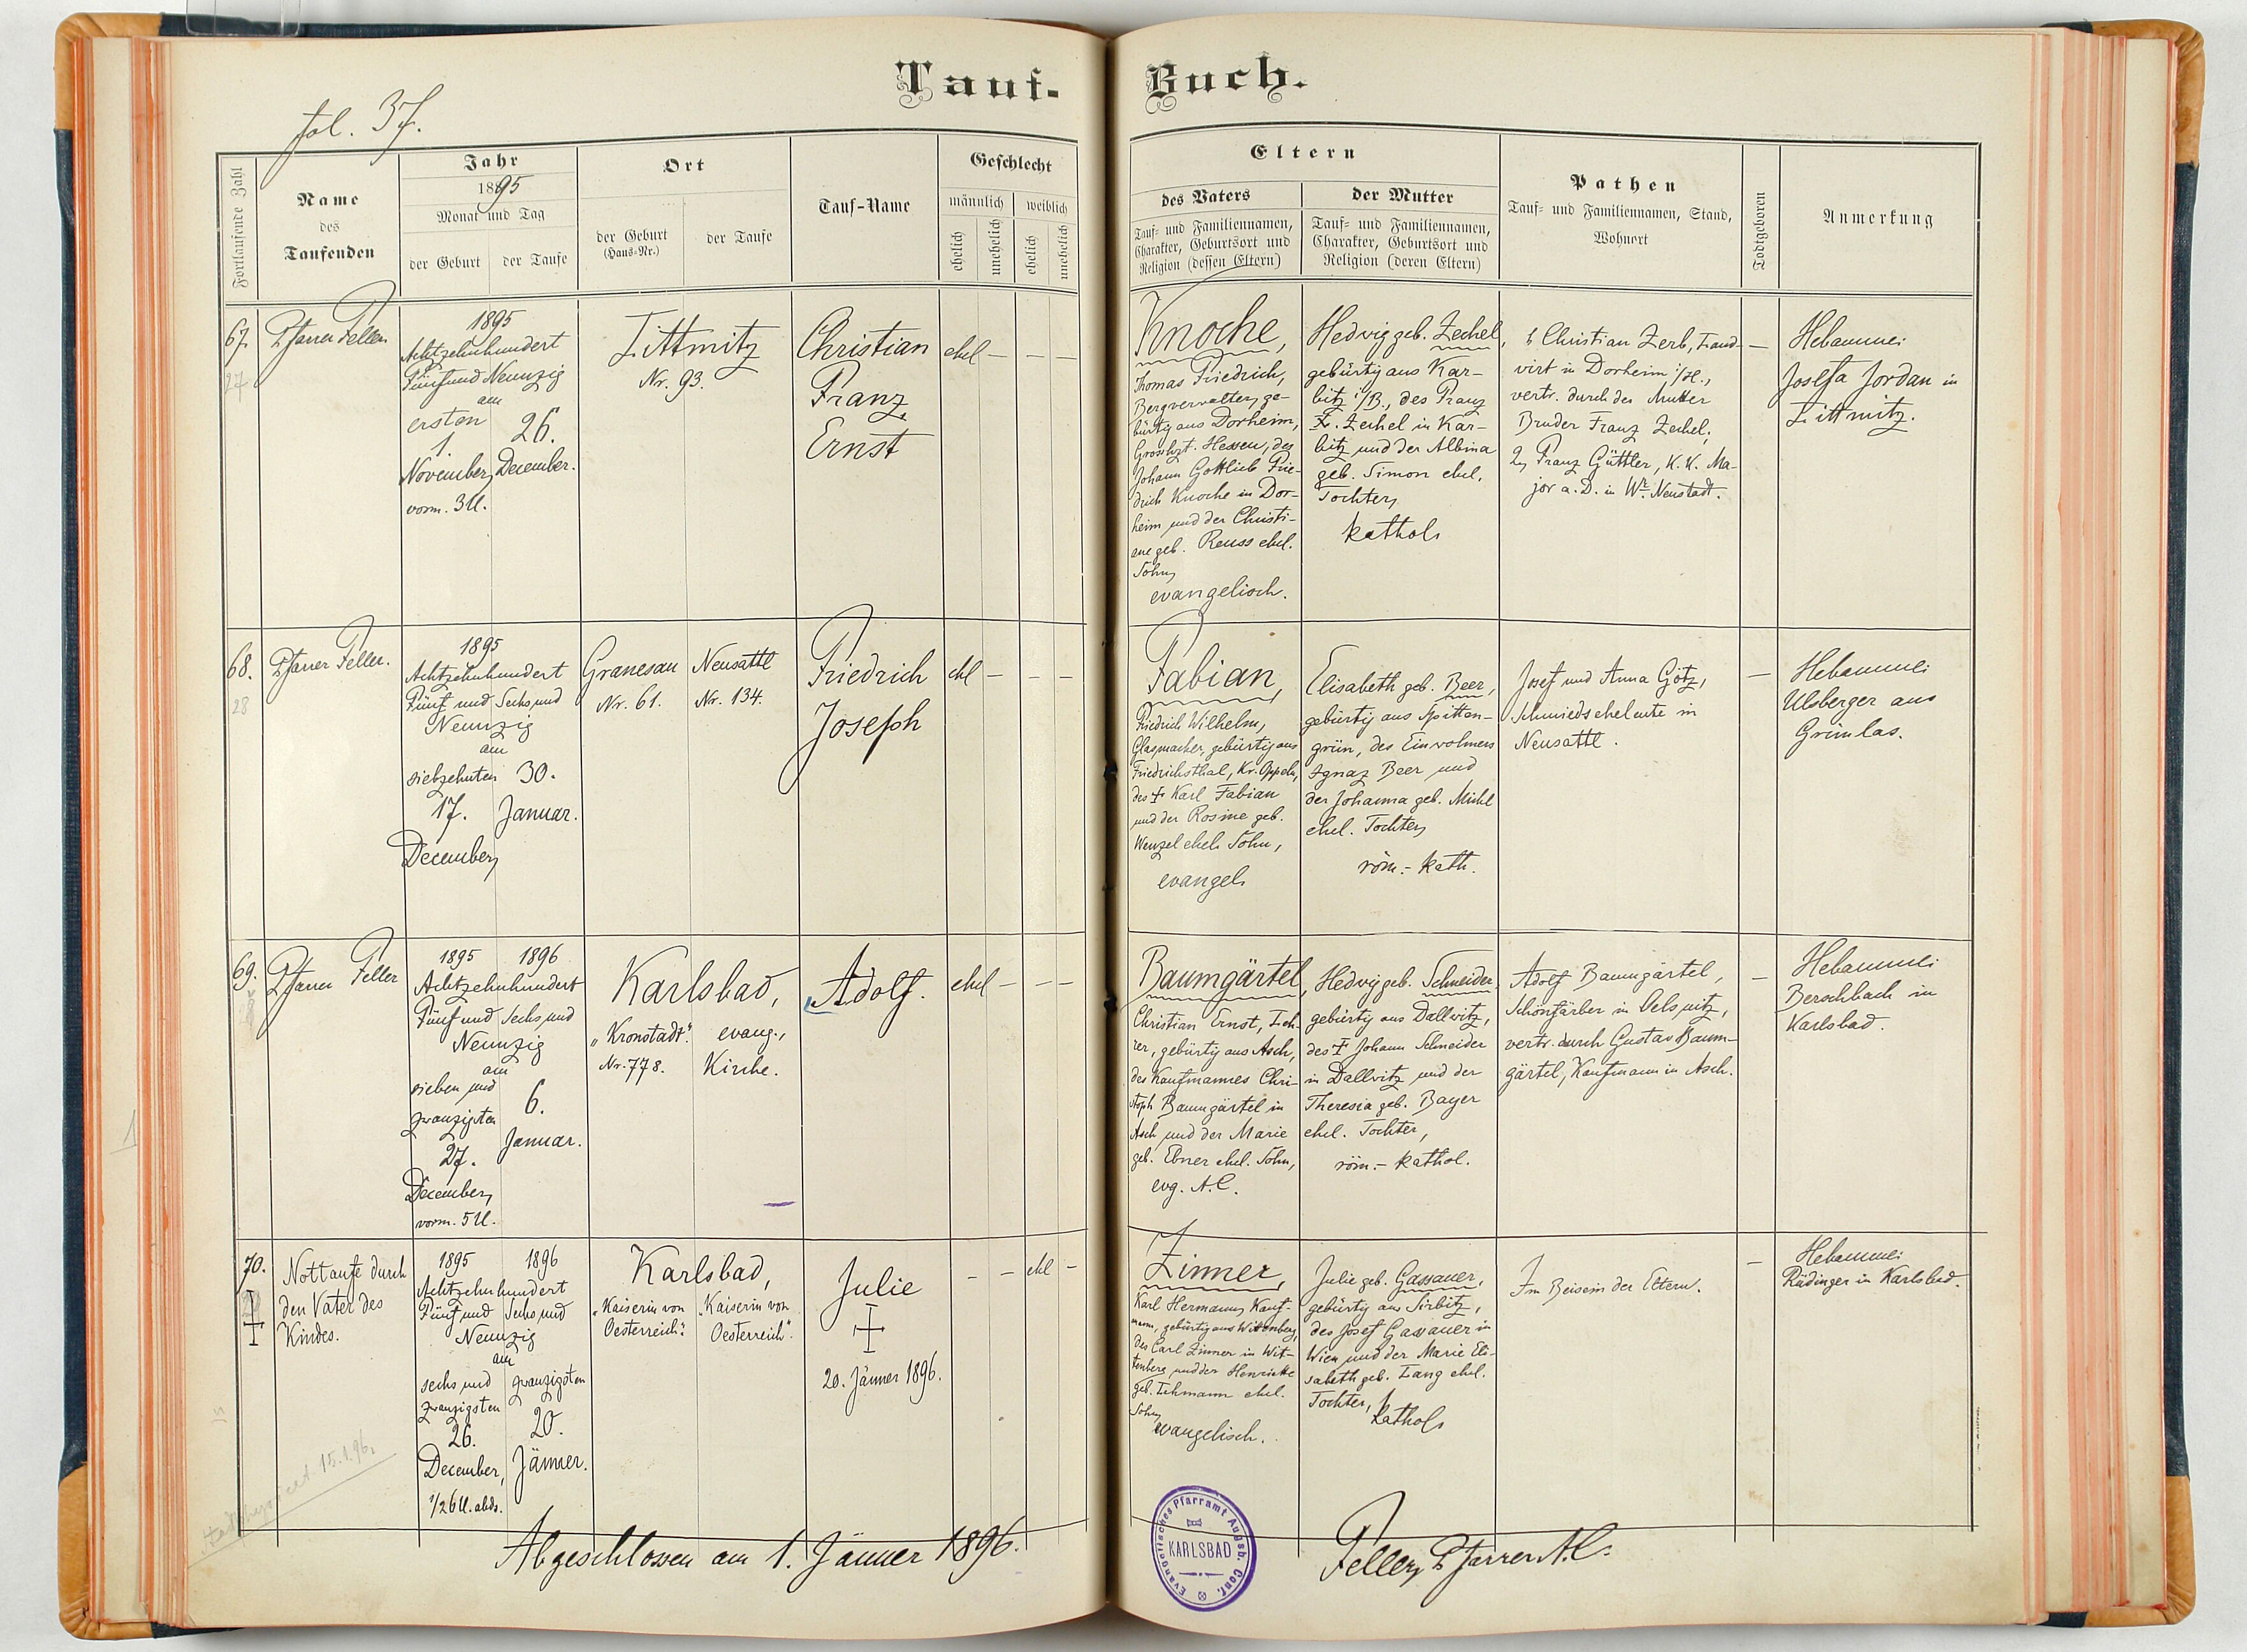 Tauf-
Buch.
fol. 37.
Fortlaufende Zahl
Name
des
Taufenden
Jahr
1895
Monat und Tag
der Geburt
der Taufe
Ort
der Geburt
(Haus-Nr.)
der Taufe
Tauf-Name
Geschlecht
männlich
weiblich
ehelich
unehelich
ehelich
unehelich
Eltern
des Vaters
Tauf- und Familiennamen,
Charakter, Geburtsort und
Religion (dessen Eltern)
der Mutter
Tauf- und Familiennamen,
Charakter, Geburtsort und
Religion (deren Eltern)
Pathen
Tauf- und Familiennamen, Stand,
Wohnort
Todtgeboren
Anmerkung
67.
27
Pfarrer Feller
1895
Achtzehnhundert
Fünf und Neunzig
am
ersten
1.
November,
vorm. 3 U.
26.
December.
Littmitz
Nr. 93.
Christian
Franz
Ernst
ehel — — — —
Knoche,
Thomas Friedrich,
Bergverwalter, ge-
bürtig aus Dorheim,
Grosshzt. Hessen, des
Johann Gottlieb Frie-
drich Knoche in Dor-
heim und der Christi-
ane geb. Reuss ehel.
Sohn,
evangelisch.
Hedwig geb. Zechel,
gebürtig aus Kar-
bitz i/B., des Franz
Fr. Zechel in Kar-
bitz und der Albina
geb. Simon ehel.
Tochter,
kathol.
1, Christian Zerb, Land-
wirt in Dorheim i/H.,
vertr. durch der Mutter
Bruder Franz Zechel,
2, Franz Güttler, K. K. Ma-
jor a. D. in Wr. Neustadt.
Hebamme:
Josefa Jordan in
Littmitz.
68.
28
Pfarrer Feller.
1895
Achtzehnhundert
Fünf und Sechs und
Neunzig
am
siebzehnten
17.
December,
30.
Januar.
Granesau
Nr. 61.
Neusattl
Nr. 134.
Friedrich
Joseph
ehl — — —
Fabian,
Friedrich Wilhelm,
Glasmacher, gebürtig aus
Friedrichsthal, Kr. Oppeln,
des † Karl Fabian
und der Rosine geb.
Wenzel ehel. Sohn,
evangel.
Elisabeth geb. Beer,
gebürtig aus Spitten-
grün, des Einwohners
Ignaz Beer und
der Johanna geb. Michl
ehel. Tochter,
röm.-kath.
Josef und Anna Götz,
Schmiedseheleute in
Neusattl.
—
Hebamme:
Ulsberger aus
Grünlas.
69.
Pfarrer Feller
1895 1896
Achtzehnhundert
Fünf und Sechs und
Neunzig
am
sieben und
zwanzigsten
27.
December,
vorm. 5 U.
6.
Januar.
Karlsbad,
"Kronstadt".
Nr. 778.
evang.,
Kirche.
Adolf.
ehel — — —
Baumgärtel,
Christian Ernst, Leh-
rer, gebürtig aus Asch,
des Kaufmannes Chri-
stoph Baumgärtel in
Asch und der Marie
geb. Ebner ehel. Sohn,
evg. A. C.
Hedwig geb. Schneider
gebürtig aus Dallwitz,
des † Johann Schneider
in Dallwitz und der
Theresia geb. Bayer
ehel. Tochter,
röm.-kathol.
Adolf Baumgärtel,
Schönfärber in Oelsnitz,
vertr. durch Gustav Baum-
gärtel, Kaufmann in Asch.
—
Hebamme:
Berschbach in
Karlsbad.
70.
Nottaufe durch
den Vater des
Kindes.
1895 1896
Achtzehnhundert
Fünf und Sechs und
Neunzig
am
sechs und
zwanzigsten
26.
December,
1/2 6 U. abds.
zwanzigsten
20.
Jänner.
Karlsbad,
"Kaiserin von
Oesterreich".
"Kaiserin von
Oesterreich".
Julie
†
20. Jänner 1896.
— — ehl —
Zinner,
Karl Hermann, Kauf-
mann, gebürtig aus Wittenberg,
des Carl Zinner in Wit-
tenberg und der Henriette
geb. Lehmann ehel.
Sohn,
evangelisch.
Julie geb. Gassauer,
gebürtig aus Sirbitz,
des Josef Gassauer in
Wien und der Marie Eli-
sabeth geb. Lang ehel.
Tochter,
kathol.
Im Beisein der Eltern.
—
Hebamme:
Rüdinger in Karlsbad.
15.1.96.
Abgeschlossen am 1. Jänner 1896.
Evangelisches Pfarramt Augsb. Conf.
KARLSBAD
Feller, Pfarrer A. C.